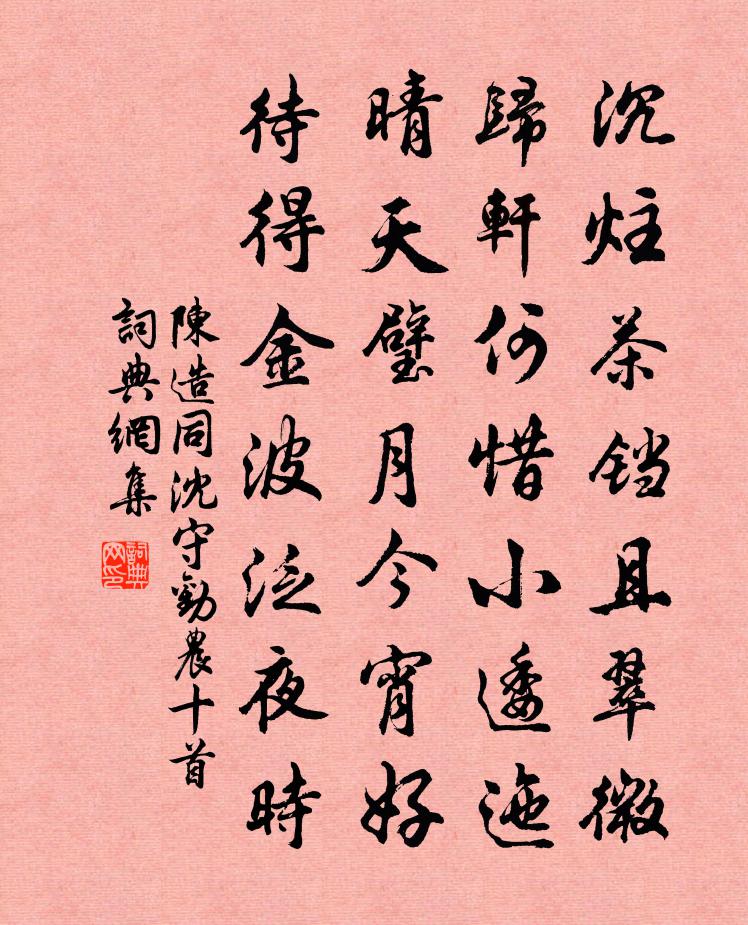 沉炷茶铛且翠微
歸軒何惜小逶迤
晴天璧月今宵好
待得金波泛夜時
陳造同沈守勸農十首
詞典網集
詞典网印